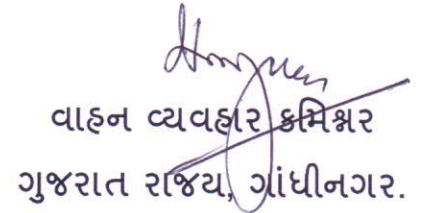 વાહન વ્યવહાર કમિશ્નર
ગુજરાત રાજય, ગાંધીનગર.